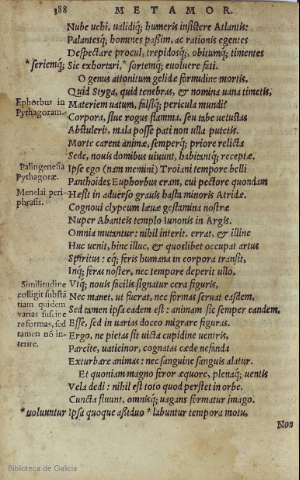 188 METAMOR.
Nube vehi, validiq; humeris insistere Atlantis:
Palantesq; homines passim, ac rationis egentes
Despectare procul, trepidosq;, obitumq; timentes
*seriemq; Sic exhortari, *sortemq; evoluere fati.
O genus attonitum gelidæ formidine mortis.
Quid Styga, quid tenebras, & nomina vana timetis,
Ephorbus in Pythagoram
Materiem vatum, falsiq; pericula mundi?
Corpora, siue rogus flamma, seu tabe vetustas
Abstulerit, mala posse pati non vlla putetis.
Morte carent animæ, semperq; priore relicta
Sede, nouis domibus viuunt, habitantq; receptæ.
Palingenesia Pythagoræ.
Ipse ego (nam memini) Troiani tempore belli
Panthoides Euphorbus eram, cui pectore quondam
Menelai periphrasis.
Hæsit in aduerso grauis hasta minoris Atridæ.
Cognoui clypeum læuæ gestamina nostræ
Nuper Abanteis templo Iunonis in Argis.
Omnia mutantur: nihil interit. errat, & illinc
Huc venit, hinc illuc, & quoslibet occupat artus
Spiritus: eq; feris humana in corpora transit,
Inq; feras noster, nec tempore deperit vllo.
Similitudine colligit substantiam quidem varias suscipere formas, sed tamen nõ interire.
Vtq; nouis facilis signatur cera figuris,
Nec manet, vt fuerat, nec formas seruat easdem,
Sed tamen ipsa eadem est: animam sic semper eandem,
Esse, sed in varias doceo migrare figuras.
Ergo, ne pietas sit victa cupidine ventris,
Parcite, vaticinor, cognatas cæde nefanda
Exturbare animas: nec sanguine sanguis alatur.
Et quoniam magno feror æquore, plenaq; ventis
Vela dedi: nihil est toto quod perstet in orbe.
Cuncta fluunt, omnisq; vagans formatur imago.
*voluuntur Ipsa quoque assiduo *labuntur tempora motu,
Non
Biblioteca de Galicia